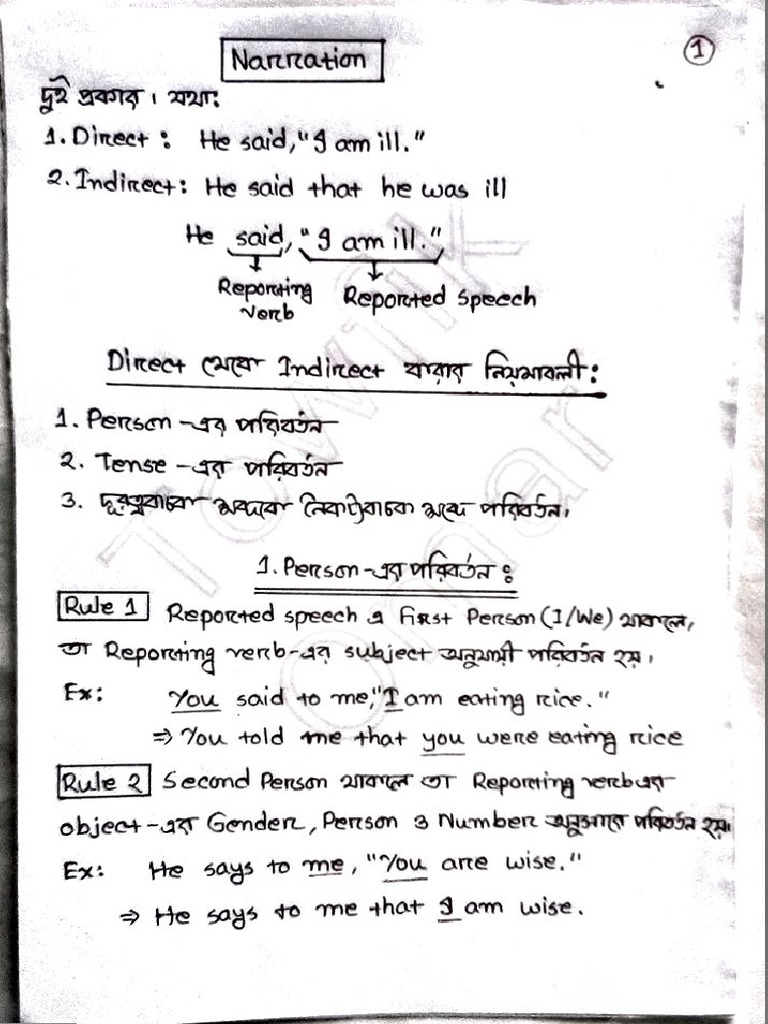 Narration
1
দুই প্রকার। যথা:
1. Direct : He said, "I am ill."
2. Indirect: He said that he was ill
He said, "I am ill."
Reporting verb Reported speech
Direct থেকে Indirect করার নিয়মাবলী :
1. Person -এর পরিবর্তন
2. Tense -এর পরিবর্তন
3. দূরত্ববাচক শব্দকে নৈকট্যবাচক শব্দে পরিবর্তন।
1. Person-এর পরিবর্তন :
Rule 1 Reported speech এ first Person (I/We) থাকলে,
তা Reporting verb-এর subject অনুযায়ী পরিবর্তন হয়।
Ex: You said to me, "I am eating rice."
⇒ You told me that you were eating rice
Rule 2 Second Person থাকলে তা Reporting verb এর
object-এর Gender, Person ও Number অনুসারে পরিবর্তন হয়।
Ex: He says to me, "You are wise."
⇒ He says to me that I am wise.
Towfik
Omar